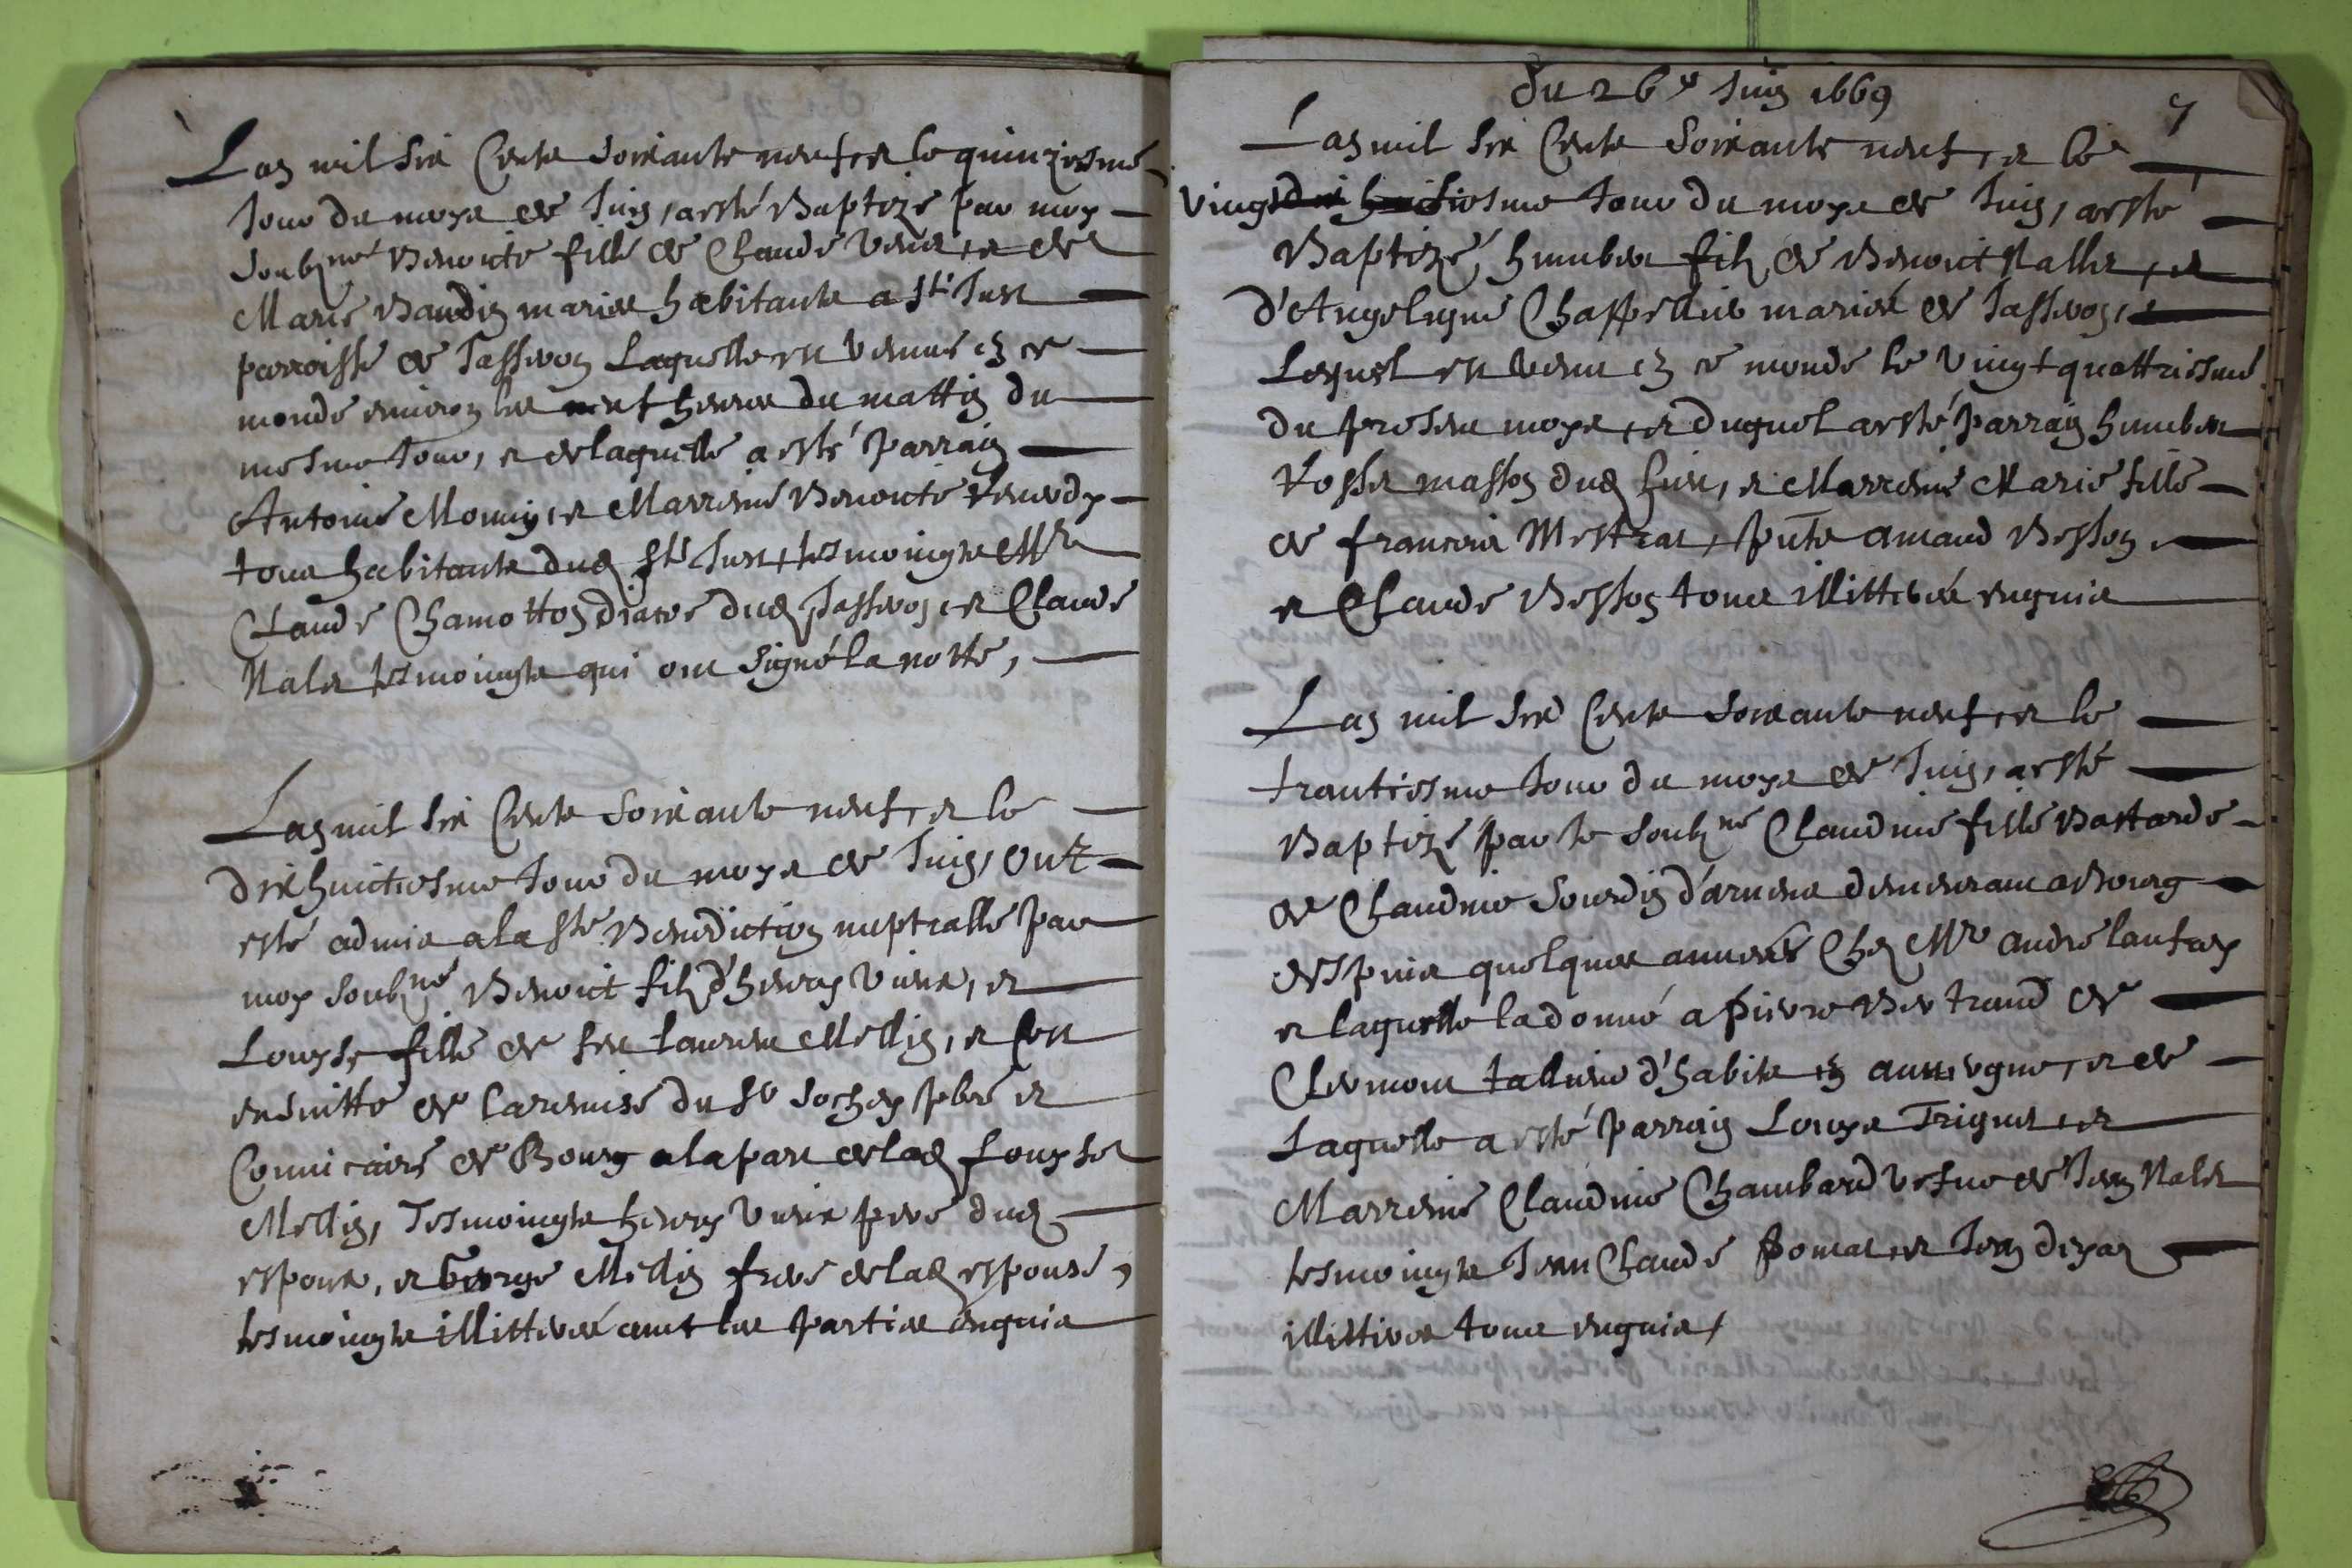 Lan mil six Cents soixante neuf, et le quinziesme
Jour du moys de Juin, a esté Baptizé par moy
soubzné Benoite fille de Claude et de
Marie Baudin mariés habitants a St Just
parroisse de Jasseron Laquelle est venue en ce
monde environ les neuf heures du mattin du
mesme Jour, et de laquelle a esté Parrain
Antoine et Marreine Benoite
tous habitants dud St Just, tesmoingts Mre
Claude Chamotton diacre dud Jasseron, et Claude
Nalet tesmoingts qui ont signé la notte,
Lan mil six Cents soixante neuf, et le
dixhuictiesme Jour du moys de Juin, ont
esté admis a la Ste Benediction nuptialle par
moy soubzné Benoict filz d'henry et
Louyse fille de feu Laurent Mellin, et cest
ensuitte de la remise du Sr Sochay pbre et
Convicaire de Bourg a la part de lad Louyse
Mellin, Tesmoingts henry pere dud
espoux, et George Mellin frere de lad espouse,
tesmoingts illitterés avec les parties enquis
du 26e Juin 1669
7
Lan mil six Cents soixante neuf, et le
vingt siesme Jour du moys de Juin, a esté
Baptizé, humbert filz de Benoict Nallet, et
d'Angelique Chappellus mariés de Jasseron,
Lequel est venu en ce monde le vingt quattriesme
du present moys, et duquel a esté Parrain humbert
Rosset masson dud lieu, et Marreine Marie fille
de francois Mestrat, pnts Amand Besson
et Claude Besson tous illitterés enquis
Lan mil six Cents soixante neuf, et le
trantiesme Jour du moys de Juin, a esté
Baptizé par le soubzné Claudine fille Bastarde
de Claudine Sourdin demeurant a Bourg
despuis quelques années Chez Mre André
et laquelle la donné a Pierre Bertrand de
Clermont tallieur d'habits en auvergne, et de
Laquelle a esté Parrain Louys et
Marreine Claudine Chambard vefve de Jean Nalet
tesmoingts Jean Claude Pomat, et Jean
illitteres tous enquis,